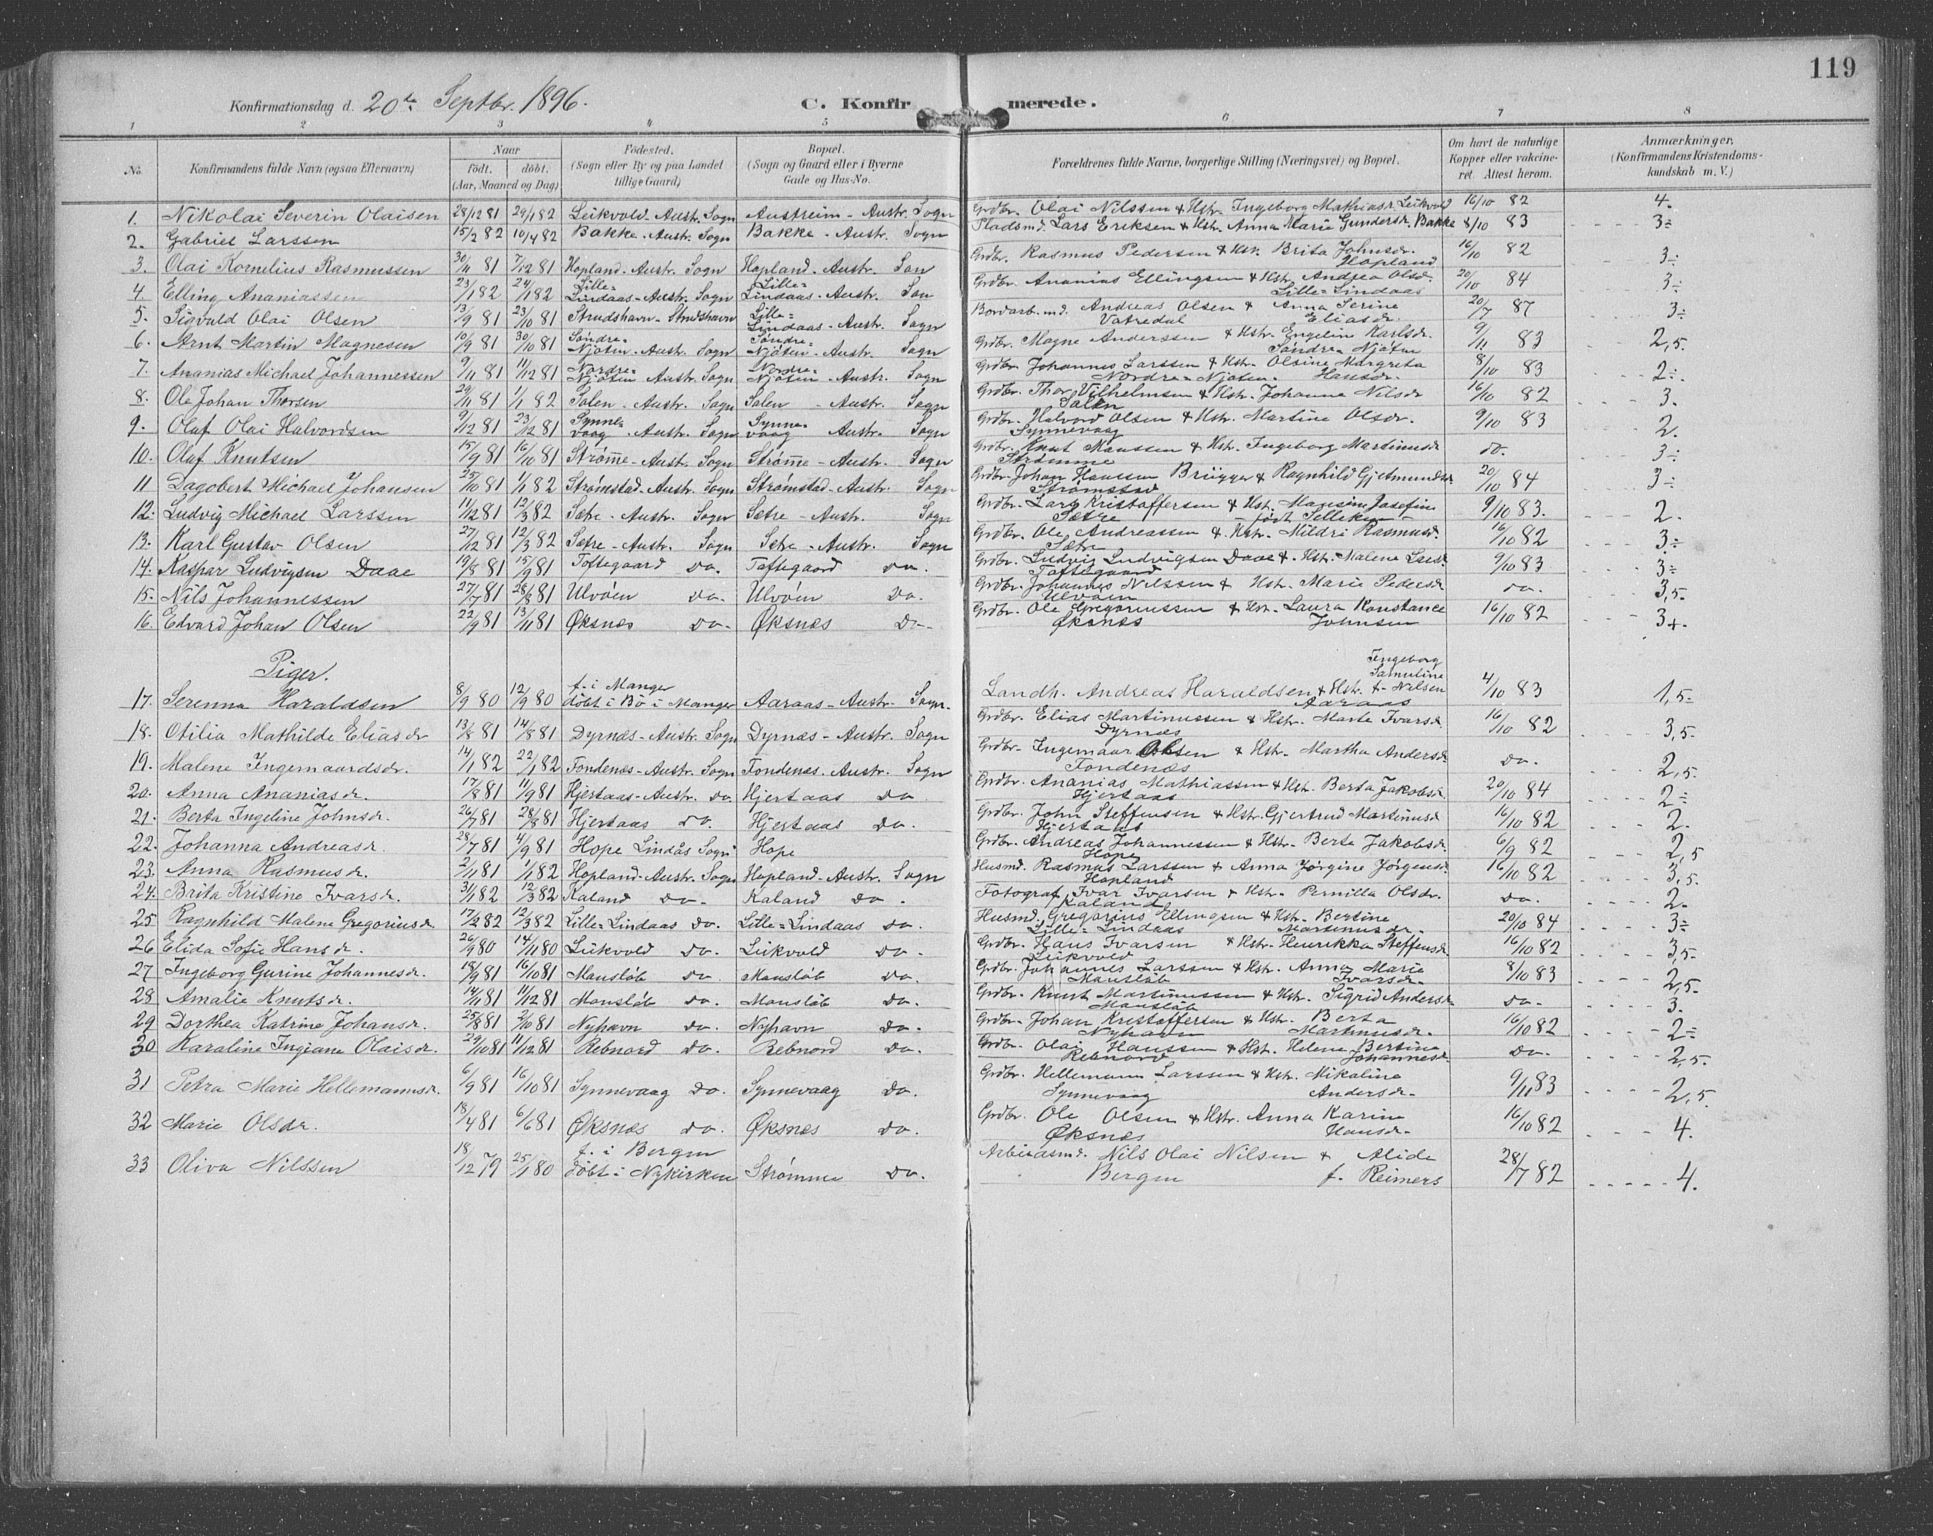 119
Konfirmationsdag d. 20de Septbr. 1896.
C. Konfirmerede.
1 2 3 4 5 6 7 8
No. Konfirmandens fulde Navn (ogsaa Efternavn) Naar født. døbt. (Aar, Maaned og Dag) Fødested. (Sogn eller By og paa Landet tillige Gaard) Bopæl. (Sogn og Gaard eller i Byerne Gade og Hus-No. Forældrenes fulde Navne, borgerlige Stilling (Næringsvei) og Bopæl. Om havt de naturlige Kopper eller vakcineret. Attest herom. Anmærkninger. (Konfirmandens Kristendomskundskab m. V.)
1. Nikolai Severin Olaisen 28/12 81 29/1 82 Leikvold-Austr. Sogn Austreim-Austr. Sogn Grdbr. Olai Nilssen & Hstr. Ingeborg Mathiasdr. Leikvold 16/10 82 4.
2. Gabriel Larssen 15/2 82 10/4 82 Bakke-Austr. Sogn Bakke-Austr. Sogn Pladsmd. Lars Eriksen & Hstr. Anna Marie Gundersdr. Bakke 8/10 83 3÷
3. Olai Kornelius Rasmussen 30/11 81 7/12 81 Hopland-Austr. Sogn Hopland-Austr. Son Grdbr. Rasmus Pedersen & Hstr. Brita Johnsdr. Hopland 16/10 82 3÷
4. Elling Ananiassen 23/1 82 24/1 82 Lille-Lindaas-Austr. Sogn Lille-Lindaas-Austr. Son Grdbr. Ananias Ellingsen & Hstr. Andrea Olsdr. Lille-Lindaas 20/10 84 3÷
5. Sigvald Olai Olsen 13/9 81 23/10 81 Strudshavn-Strudshavn Lille-Lindaas-Austr. Sogn Bordarb.md. Andreas Olsen & Anna Serine Eliasdr. Vatredal 20/7 87 3÷
6. Arnt Martin Magnesen 10/9 81 30/10 81 Søndre-Njøten-Austr. Sogn Søndre-Njøten-Austr. Sogn Grdbr. Magne Andersen & Hstr. Engelin Karlsdr. Søndre-Njøten 9/11 83 2,5.
7. Ananias Michael Johannessen 9/11 81 11/12 81 Nordre-Njøten Austr. Sogn Nordre-Njøten-Austr. Sogn Grdbr. Johannes Larssen & Hstr. Olsine Margreta Hansdr. Nordre-Njøten- 8/10 83 2÷
8. Ole Johan Thorsen 29/11 81 1/1 82 Solen-Austr. Sogn Solen-Austr. Sogn Grdbr. Thor Vilhelmsen & Hstr. Johanna Nilsdr Solen 16/10 82 3.
9. Olaf Olai Halvordsen 9/12 81 23/12 81 Synnevaag-Austr. Sogn Synnevaag Austr. Sogn Grdbr. Halvord Olsen & Hstr. Martine Olsdr. Synnevaag 9/10 83 2.
10. Olaf Knutsen 15/9 81 16/10 81 Strømme-Austr. Sogn Strømme-Austr. Sogn Grdbr. Knut Monssen & Hstr. Ingeborg Martinusdr Strømme do. 3÷
11. Dagobert Michael Johansen 25/10 81 1/1 82 Strømstad-Austr. Sogn Strømstad-Austr. Sogn Grdbr. Johan Hanssen Brügger & Ragnhild Gjetmundsdr Strømstad 20/10 84 3÷
12. Ludvig Michael Larssen 11/12 81 12/3 82 Sætre-Austr. Sogn Sætre-Austr. Sogn Grdbr. Lars Kristoffersen & Hstr. Josefine Sætre 9/10 83. 2.
13. Karl Gustav Olsen 27/12 81 12/3 82 Sætre-Austr. Sogn Sætre-Austr. Sogn Grdbr. Ole Andreassen & Hstr. Mildri Rasmusd. Sætre 16/10 82 3÷
14. Kaspar Ludvigsen Daae 19/8 81 15/9 81 Toftegaard do. Toftegaard do. Grdbr. Ludvig Ludvigsen Daae & Hstr. Malene Toftegaard 9/10 83 3÷
15. Nils Johannessen 27/7 81 28/8 81 Ulvøen do. Ulvøen do. Grdbr. Johannes Nilssen & Hstr. Marie Pedersdr Ulvøen do. 3,5.
16. Edvard Johan Olsen 22/9 81 13/11 81 Øksnes do- Øksnes do- Grdbr. Ole Gregoriussen & Hstr. Laura Konstance Johnsen Øksnes 16/10 82 3+.
Piger.
17. Serenna Haraldsen 8/9 80 12/9 80 f. i Manger døbt i Bø i Manger Aaraas-Austr. Sogn. Landh. Andreas Haraldsen & Hstr. Ingeborg Samuline f. Nilsen Aaraas 4/10 83 1,5.
18. Otilia Mathilde Eliasdr 13/8 81 14/8 81 Dyrnæs-Austr. Sogn Dyrnæs-Austr. Sogn Grdbr. Elias Martinussen & Hstr. Marte Ivarsdr Dyrnæs 16/10 82 3,5.
19. Malene Ingemaardsdr. 14/1 82 22/1 82 Fondenæs-Austr. Sogn Fondenæs-Austr. Sogn Grdbr. Ingemaar Olsen & Hstr. Martha Andersdr Fondenæs do. 2,5.
20. Anna Ananiasdr. 17/8 81 11/9 81 Hjertaas-Austr. do Hjertaas do Grdbr. Ananias Mathiassen & Hstr. Berta Jakobsdr. Hjertaas 20/10 84 2÷
21. Berta Ingeline Johnsdr. 26/7 81 28/8 81 Hjertaas do. Hjertaas do. Grdbr. John Steffensen & Hstr. Gjertrud Martinusdr Hjertaas 16/10 82 2.
22. Johanna Andreasdr. 28/7 81 4/9 81 Hope Lindås Sogn Hope Grdbr. Andreas Johannessen & Hstr. Berte Jakobsdr. Hope 6/9 82 2,5
23. Anna Rasmusdr. 2/11 81 1/1 82 Hopland-Austr. Sogn Hopland-Austr. Sogn Husmd. Rasmus Larssen & Anna Jørgine Jørgensdr. Hopland 16/10 82 3,5.
24. Brita Kristine Ivarsdr. 3/1 82 12/3 82 Kaland do- Kaland do. Fotograf Ivar Ivarsen & Hstr. Pernilla Olsdr. Kaland do. 2.
25 Ragnhild Malene Gregoriusdr 17/2 82 12/3 82 Lille-Lindaas do. Lille-Lindaas do. Husmd. Gregorius Ellingsen & Hstr. Bertine Martinusdr. Lille-Lindaas 20/10 84 3÷
26 Elida Sofie Hansdr. 26/9 80 14/11 80 Leikvold do. Leikvold do. Grdbr. Hans Ivarsen & Hstr. Henrikka Steffensdr Leikvold 16/10 82 3,5.
27 Ingeborg Gurine Johannesdr. 18/9 81 16/10 81 Monsløb do Monsløb do. Grdbr. Johannes Larssen & Hstr. Anna Marie Ivarsdr. Monsløb 8/10 83 2,5.
28 Amalie Knutsdr. 14/11 81 11/12 81 Monsløb do. Monsløb do. Grdbr. Knut Martinussen & Hstr. Sigrid Andersdr Monsløb do- 3.
29 Dorthea Katrine Johansdr. 25/8 81 2/10 81 Nyhavn do. Nyhavn do. Grdbr. Johan Kristoffersen & Hstr. Berta Martinusdr. Nyhavn 16/10 82 2÷
30 Karaline Ingiane Olaisdr. 29/10 81 11/12 81 Rebnord do. Rebnord do. Grdbr. Olai Hanssen & Hstr. Helene Bertine Johannesdr. Rebnord do. 2,5.
31 Petra Marie Hellemannsdr. 6/9 81 16/10 81 Synnevaag do. Synnevaag do. Grdbr. Hellemann Larssen & Hstr. Nikoline Andersdr. Synnevaag 9/11 83 2,5.
32 Marie Olsdr. 18/4 81 6/6 81 Øksnæs do. Øksnæs do. Grdbr. Ole Olsen & Hstr. Anna Karine Hansdr. Øksnæs 16/10 82 4.
33 Oliva Nilssen 18/12 79 25/1 80 f. i Bergen døbt i Nykirken Strømme do. Arbeidsmd. Nils Olai Nilsen & Alide f. Reimers Bergen 28/7 82 4.